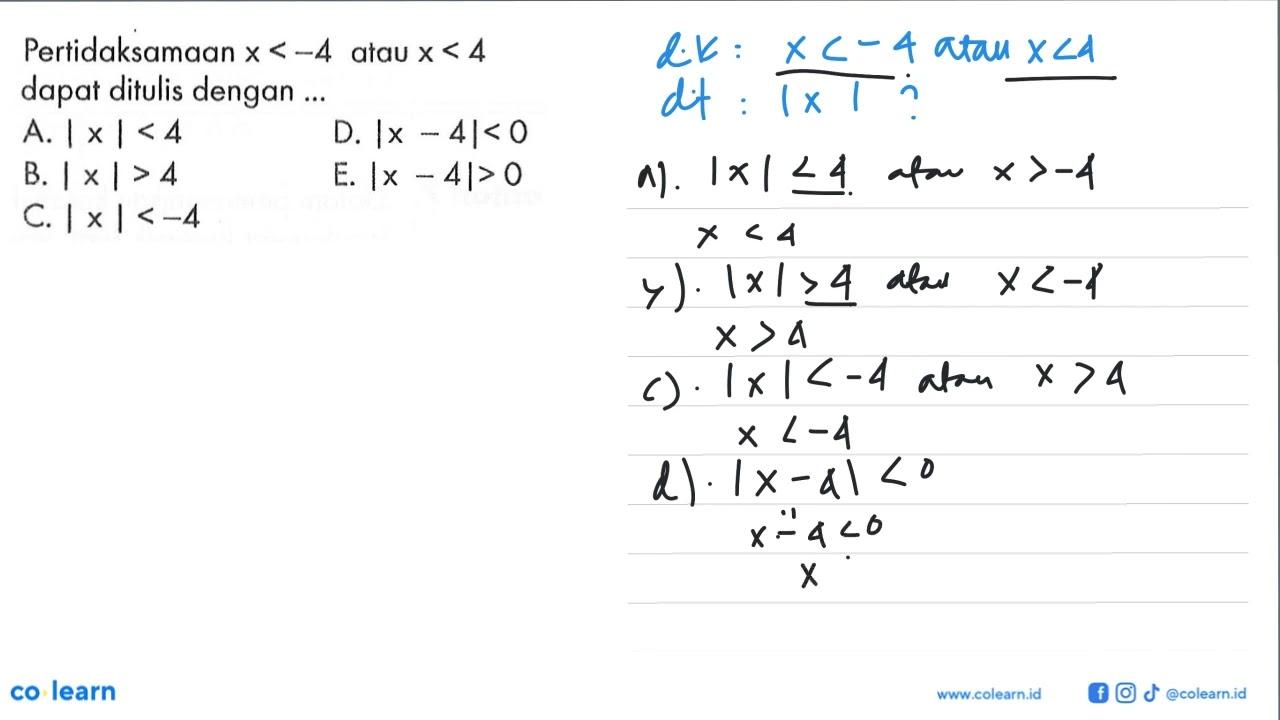 Pertidaksamaan x < -4 atau x < 4
dapat ditulis dengan ...
A. | x | < 4
D. |x - 4|< 0
B. | x | > 4
E. |x - 4|> 0
C. | x | < -4
d.k : x < - 4 atau x < 4
dit : | x | ?
a). |x| < 4 atau x > -4
x < 4
b). |x| > 4 atau x < -4
x > 4
c). |x| < -4 atau x > 4
x < -4
d). |x - 4| < 0
x - 4 < 0
x
co learn
www.colearn.id
@colearn.id